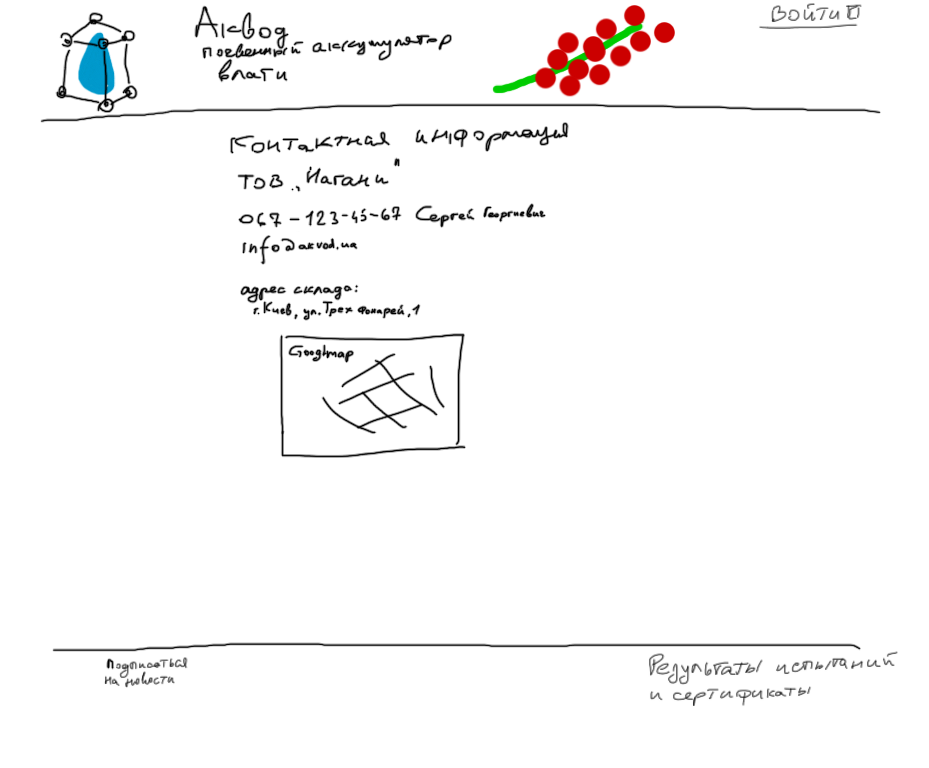 Аквод
почвенный аккумулятор
влаги
ВОЙТИ
Контактная информация
ТОВ „Нагани"
067-123-45-67 Сергей Георгиевич
info@akvod.ua
адрес склада:
г. Киев, ул. Трех Фонарей, 1
Googlmap
Подписаться
на новости
Результаты испытаний
и сертификаты